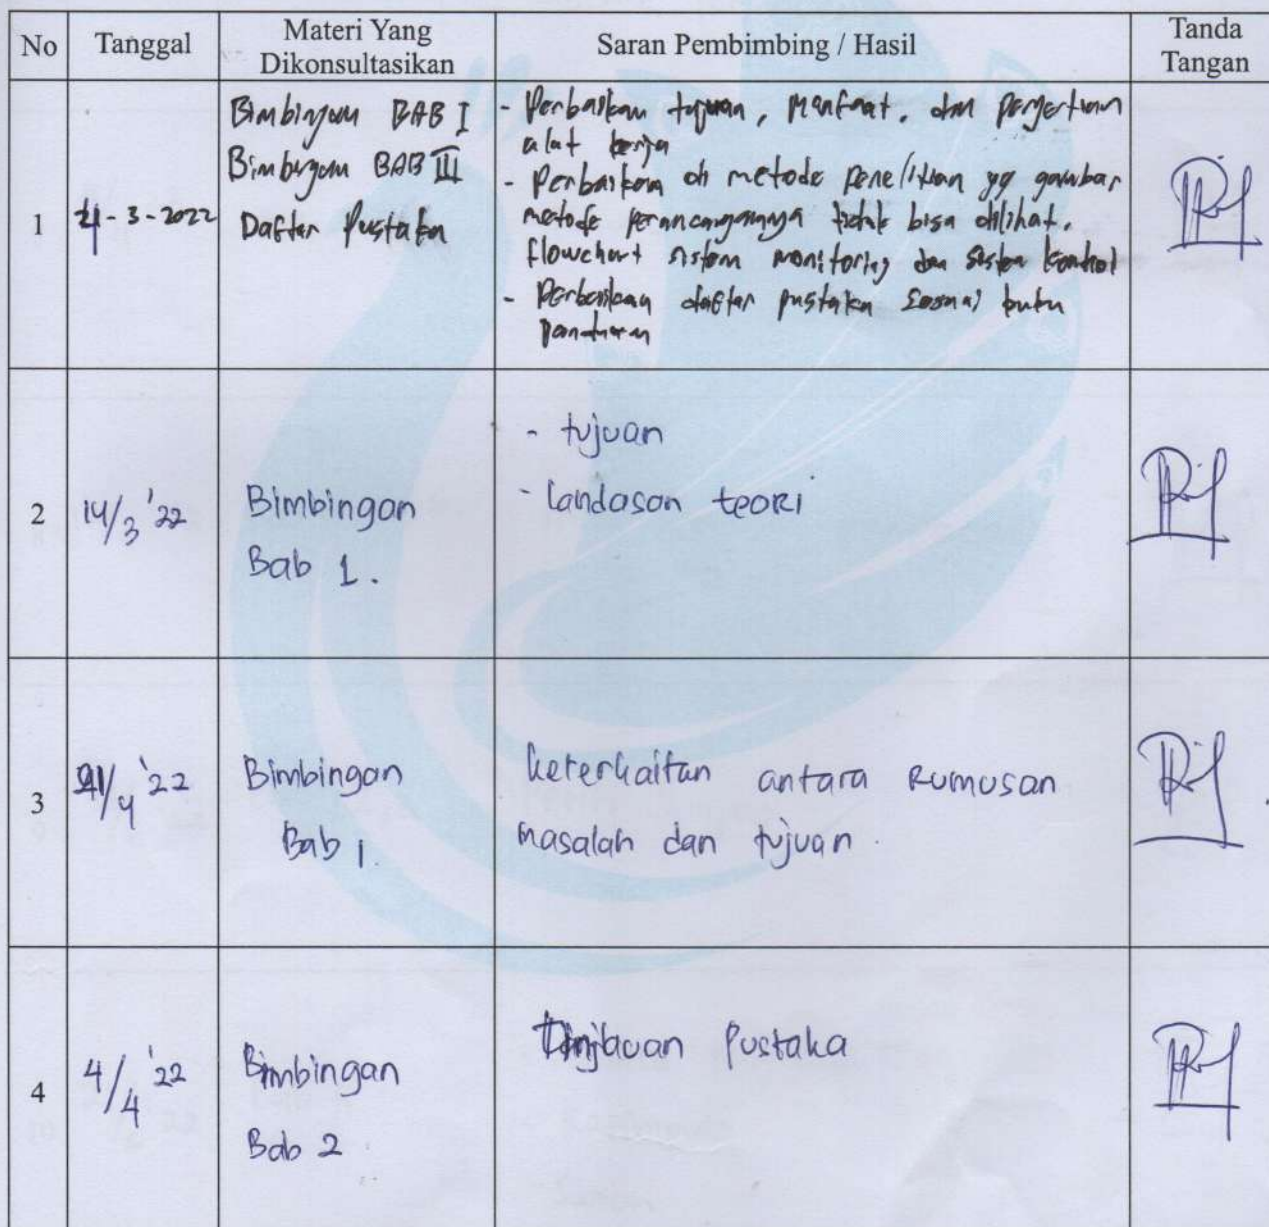 No
Tanggal
Materi Yang
Dikonsultasikan
Saran Pembimbing / Hasil
Tanda
Tangan
1
-3-2022
Bimbingan BAB I
Bimbingan BAB III
Daftar Pustaka
- Perbaikan tujuan, Manfaat, dan pengertian
alat kerja
- Perbaikan di metode Penelitian yg gambar
metode perancangannya tidak bisa dilihat.
flowchart sistem monitoring dan sistem kontrol
- Perbaikan daftar pustaka sesuai buku
Panduan
2
14/3 '22
Bimbingan
Bab 1.
- tujuan
- landasan teori
3
/4 '22
Bimbingan
Bab 1.
keterkaitan antara Rumusan
masalah dan tujuan.
4
4/4 '22
Bimbingan
Bab 2
Tinjauan Pustaka